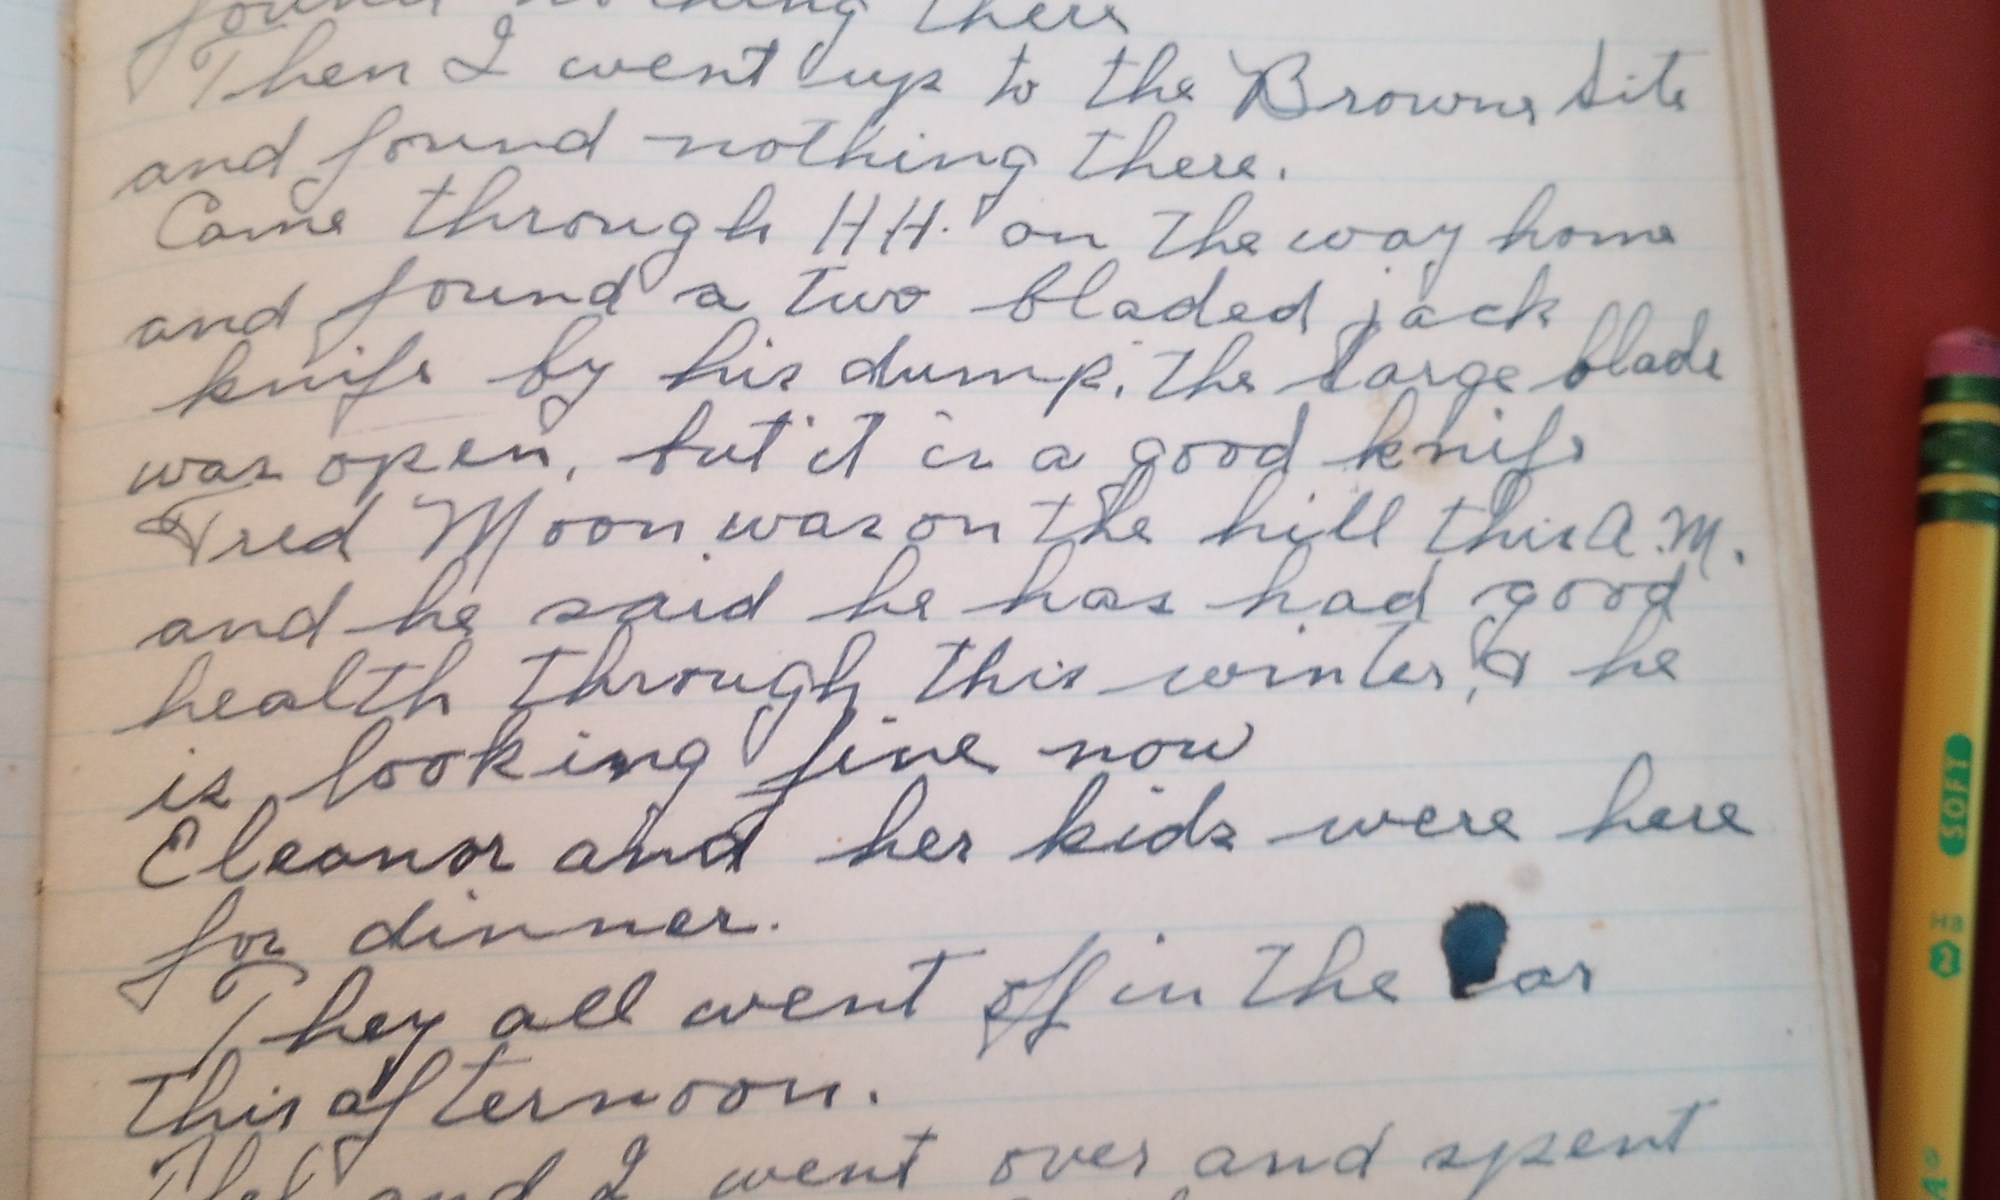 found nothing there
Then I went up to the Browns site
and found nothing there.
Came through H H. on the way home
and found a two bladed jack
knife by his dump. the large blade
was open, but it is a good knife
Fred Moon was on the hill this A.M.
and he said he has had good
health through this winter, & he
is looking fine now
Eleanor and her kids were here
for dinner.
They all went off in the car
this afternoon.
and I went over and spent
SOFT
HB
2